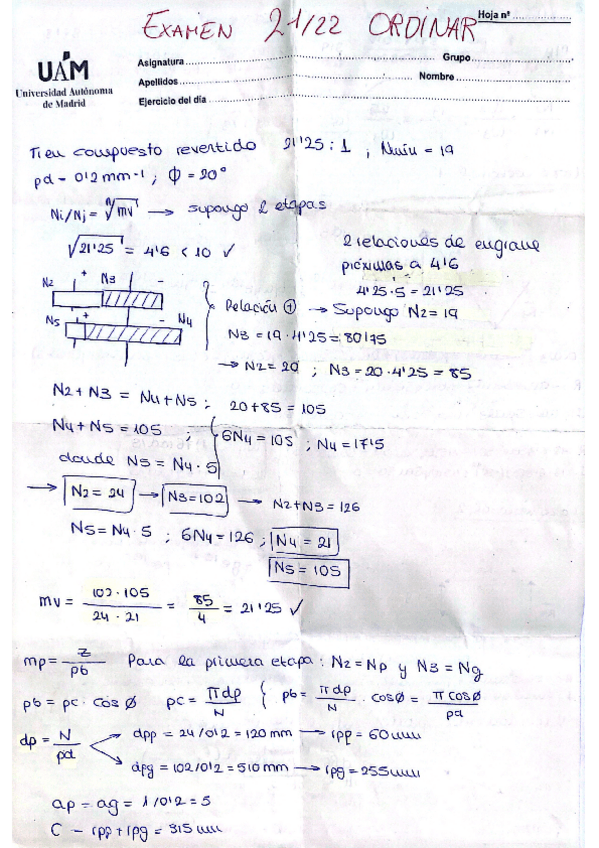 EXAMEN 21/22 ORDINAR
Hoja nº
UAM
Universidad Autónoma
de Madrid
Asignatura Grupo
Apellidos Nombre
Ejercicio del día
Tren compuesto revertido 21'25 : 1 ; Nmin = 19
pd = 0'2 mm-1 ; ϕ = 20°
Ni/Nj = ⁿ√mv → supongo 2 etapas
√21'25 = 4'6 < 10 ✓
2 relaciones de engrane
próximas a 4'6
4'25·5 = 21'25
N2 + N3 -
N5 + - N4
Relación ① → Supongo N2 = 19
N3 = 19·4'25 = 80'75
→ N2 = 20 ; N3 = 20·4'25 = 85
N2 + N3 = N4 + N5 ; 20 + 85 = 105
N4 + N5 = 105 ; 6N4 = 105 ; N4 = 17'5
donde N5 = N4·5
→ N2 = 24 → N3 = 102 → N2 + N3 = 126
N5 = N4·5 ; 6N4 = 126 ; N4 = 21
N5 = 105
mv = 102·105 / 24·21 = 85/4 = 21'25 ✓
mp = Z/pb Para la primera etapa : N2 = Np y N3 = Ng
pb = pc · cos ϕ pc = πdp/N { pb = πdp/N · cosϕ = π cosϕ/pd
dp = N/pd
dpp = 24/0'2 = 120 mm → rpp = 60 mm
dpg = 102/0'2 = 510 mm → rpg = 255 mm
ap = ag = 1/0'2 = 5
C = rpp + rpg = 315 mm